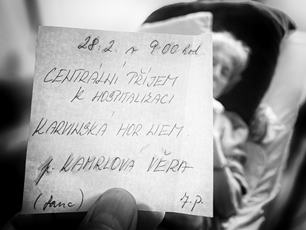 28.2. v 9.00 hod.
CENTRÁLNÍ PŘÍJEM
K HOSPITALIZACI
KARVINSKÁ HOR. NEM.
p. KAMRLOVÁ VĚRA
(Jana)